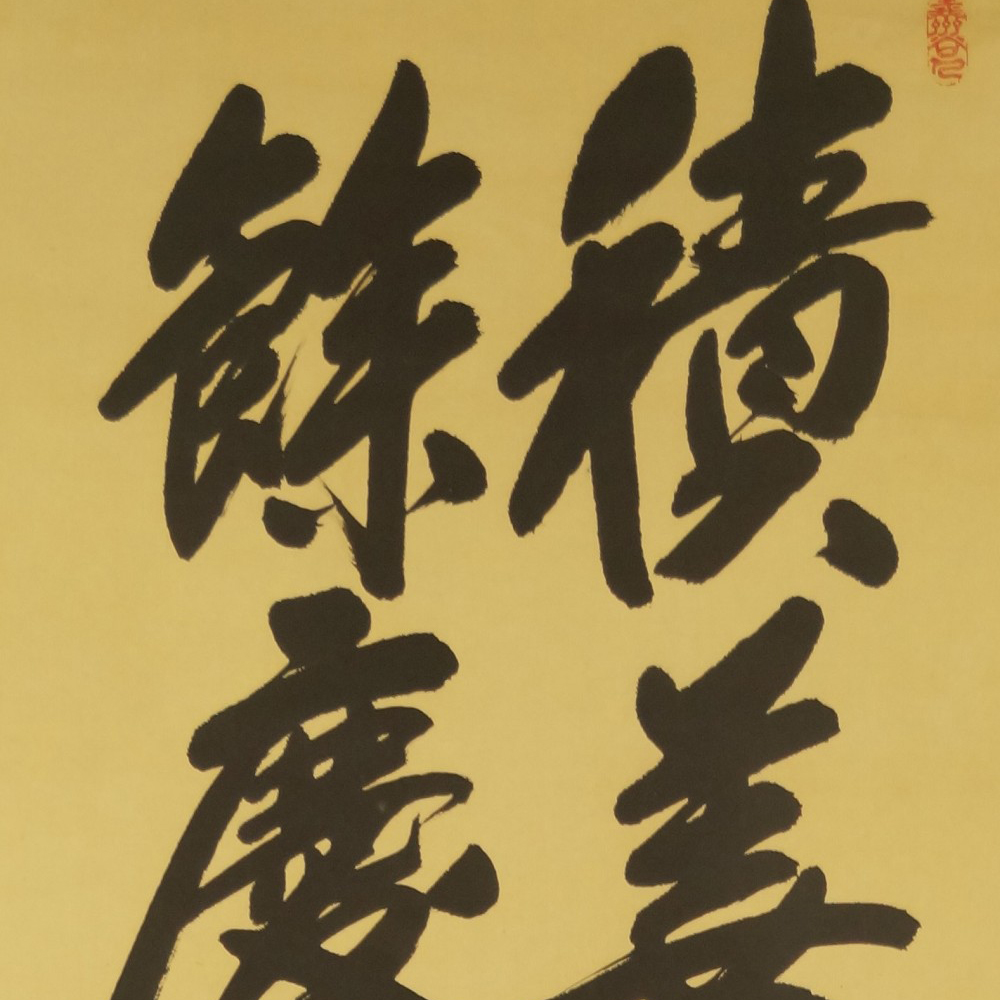 積善
餘慶